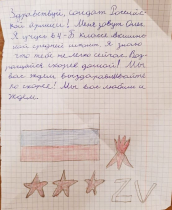 Здравствуй, солдат Россий-
ской армии! Меня зовут Олег.
Я учусь в 4-Б классе
средней школы. Я знаю
что тебе нелегко сейчас. Воз-
вращайся скорее домой! Мы
вас ждём выздоравливайте
по скорее! Мы вас любим и
ждем.
ZV